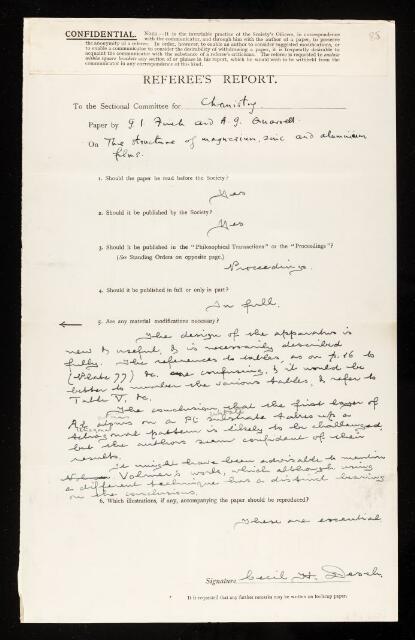 88
CONFIDENTIAL. NOTE—It is the invariable practice of the Society's Officers, in correspondence
with the communicator, and through him with the author of a paper, to preserve
the anonymity of a referee. In order, however, to enable an author to consider suggested modifications, or
to enable a communicator to consider the desirability of withdrawing a paper, it is frequently desirable to
acquaint the communicator with the substance of a referee's criticisms. The referee is requested to enclose
within square brackets any section of or phrase in his report, which he would wish to be withheld from the
communicator in any correspondence of this kind.
REFEREE'S REPORT.
To the Sectional Committee for Chemistry
Paper by G. I. Finch and A. G. Quarrell
On The structure of magnesium, zinc and aluminium
films.
1. Should the paper be read before the Society?
Yes
2. Should it be published by the Society?
Yes
3. Should it be published in the "Philosophical Transactions" or the "Proceedings"?
(See Standing Orders on opposite page.)
Proceedings.
4. Should it be published in full or only in part?
In full.
5. Are any material modifications necessary?
The design of the apparatus is
new & useful, & is necessarily described
fully. The references to tables, as on p. 16 to
(Plate 77) &c. are confusing, & it would be
better to number the various tables, & refer to
Table V, &c.
The conclusion that the first layer of
Al atoms on a Pt substrate takes up a
tetragonal pattern is likely to be challenged,
but the authors seem confident of their
results.
It might have been advisable to mention
Volmer's work, which although using
a different technique has a distinct bearing
on the conclusions.
6. Which illustrations, if any, accompanying the paper should be reproduced?
These are essential
Signature Cecil H. Desch.
It is requested that any further remarks may be written on foolscap paper.